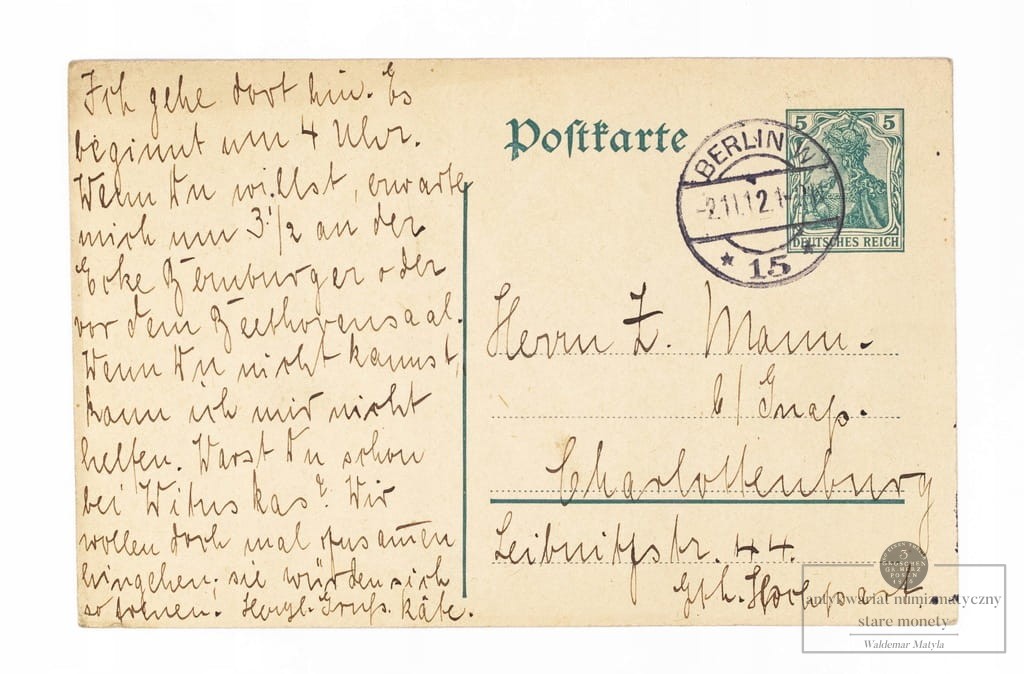 Ich gehe dort hin. Es
beginnt um 4 Uhr.
Wenn Du willst, erwarte
mich um 3 1/2 an der
Ecke Bernburger oder
vor dem Beethovensaal.
Wenn Du nicht kannst,
kann ich mir nicht
helfen. Warst Du schon
bei Wituskas? Wir
wollen doch mal zusamen
hingehen; sie würden sich
so freuen. Herzl. Gruß. Käte.
Postkarte
BERLIN W
-2.11.12.1-
* 15 *
5 5
DEUTSCHES REICH
Herrn Z. Mann.
b/
Charlottenburg
Leibnitzstr. 44.
Gth.
3
GROSCHEN
GR. HERZ.
POSEN
antykwariat numizmatyczny
stare monety
Waldemar Matyla